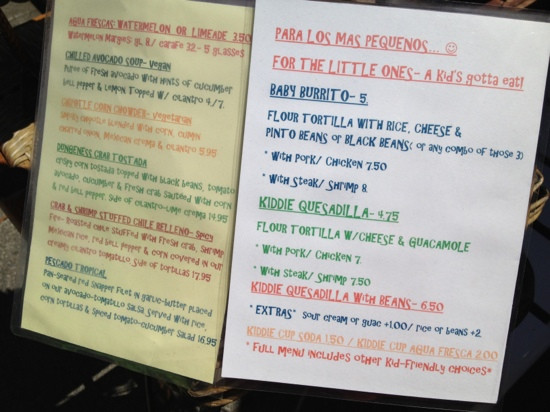 AGUA FRESCAS: WATERMELON OR LIMEADE 3.50
Watermelon Margies: gl. 8 / carafe 32 - 5 glasses
CHILLED AVOCADO SOUP- vegan
Puree of fresh avocado with hints of cucumber
bell pepper & lemon topped w/ cilantro 4/7.
CHIPOTLE CORN CHOWDER- vegetarian
smoky chipotle blended with corn, cumin
charred onion, mexican crema & cilantro 5.95
DUNGENESS CRAB TOSTADA
crispy corn tostada topped with black beans, tomato
avocado, cucumber & fresh crab sautéed with corn
& red bell pepper. side of cilantro-lime crema 14.95
CRAB & SHRIMP STUFFED CHILE RELLENO- Spicy
Fire-Roasted chile stuffed with fresh crab, shrimp
Mexican rice, red bell pepper & corn covered in our
creamy cilantro tomatillo. side of tortillas 17.95
PESCADO TROPICAL
Pan-seared red snapper filet in garlic-butter placed
on our avocado-tomatillo salsa. Served with rice,
corn tortillas & spiced tomato-cucumber salad 16.95
PARA LOS MAS PEQUENOS... ☺
FOR THE LITTLE ONES- A Kid's gotta eat!
BABY BURRITO- 5.
FLOUR TORTILLA WITH RICE, CHEESE &
PINTO BEANS or BLACK BEANS( or any combo of those 3)
* With Pork/ Chicken 7.50
* With Steak/ Shrimp 8.
KIDDIE QUESADILLA- 4.75
FLOUR TORTILLA W/CHEESE & GUACAMOLE
* With Pork/ Chicken 7.
* With Steak/ Shrimp 7.50
KIDDIE QUESADILLA With BEANS- 6.50
*EXTRAS* Sour cream or guac +1.00/ rice or beans +2.
KIDDIE CUP SODA 1.50 / KIDDIE CUP AGUA FRESCA 2.00
*Full Menu includes other Kid-Friendly choices*